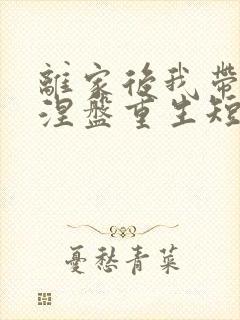 離家後我帶
涅盤重生短
憂愁青菜